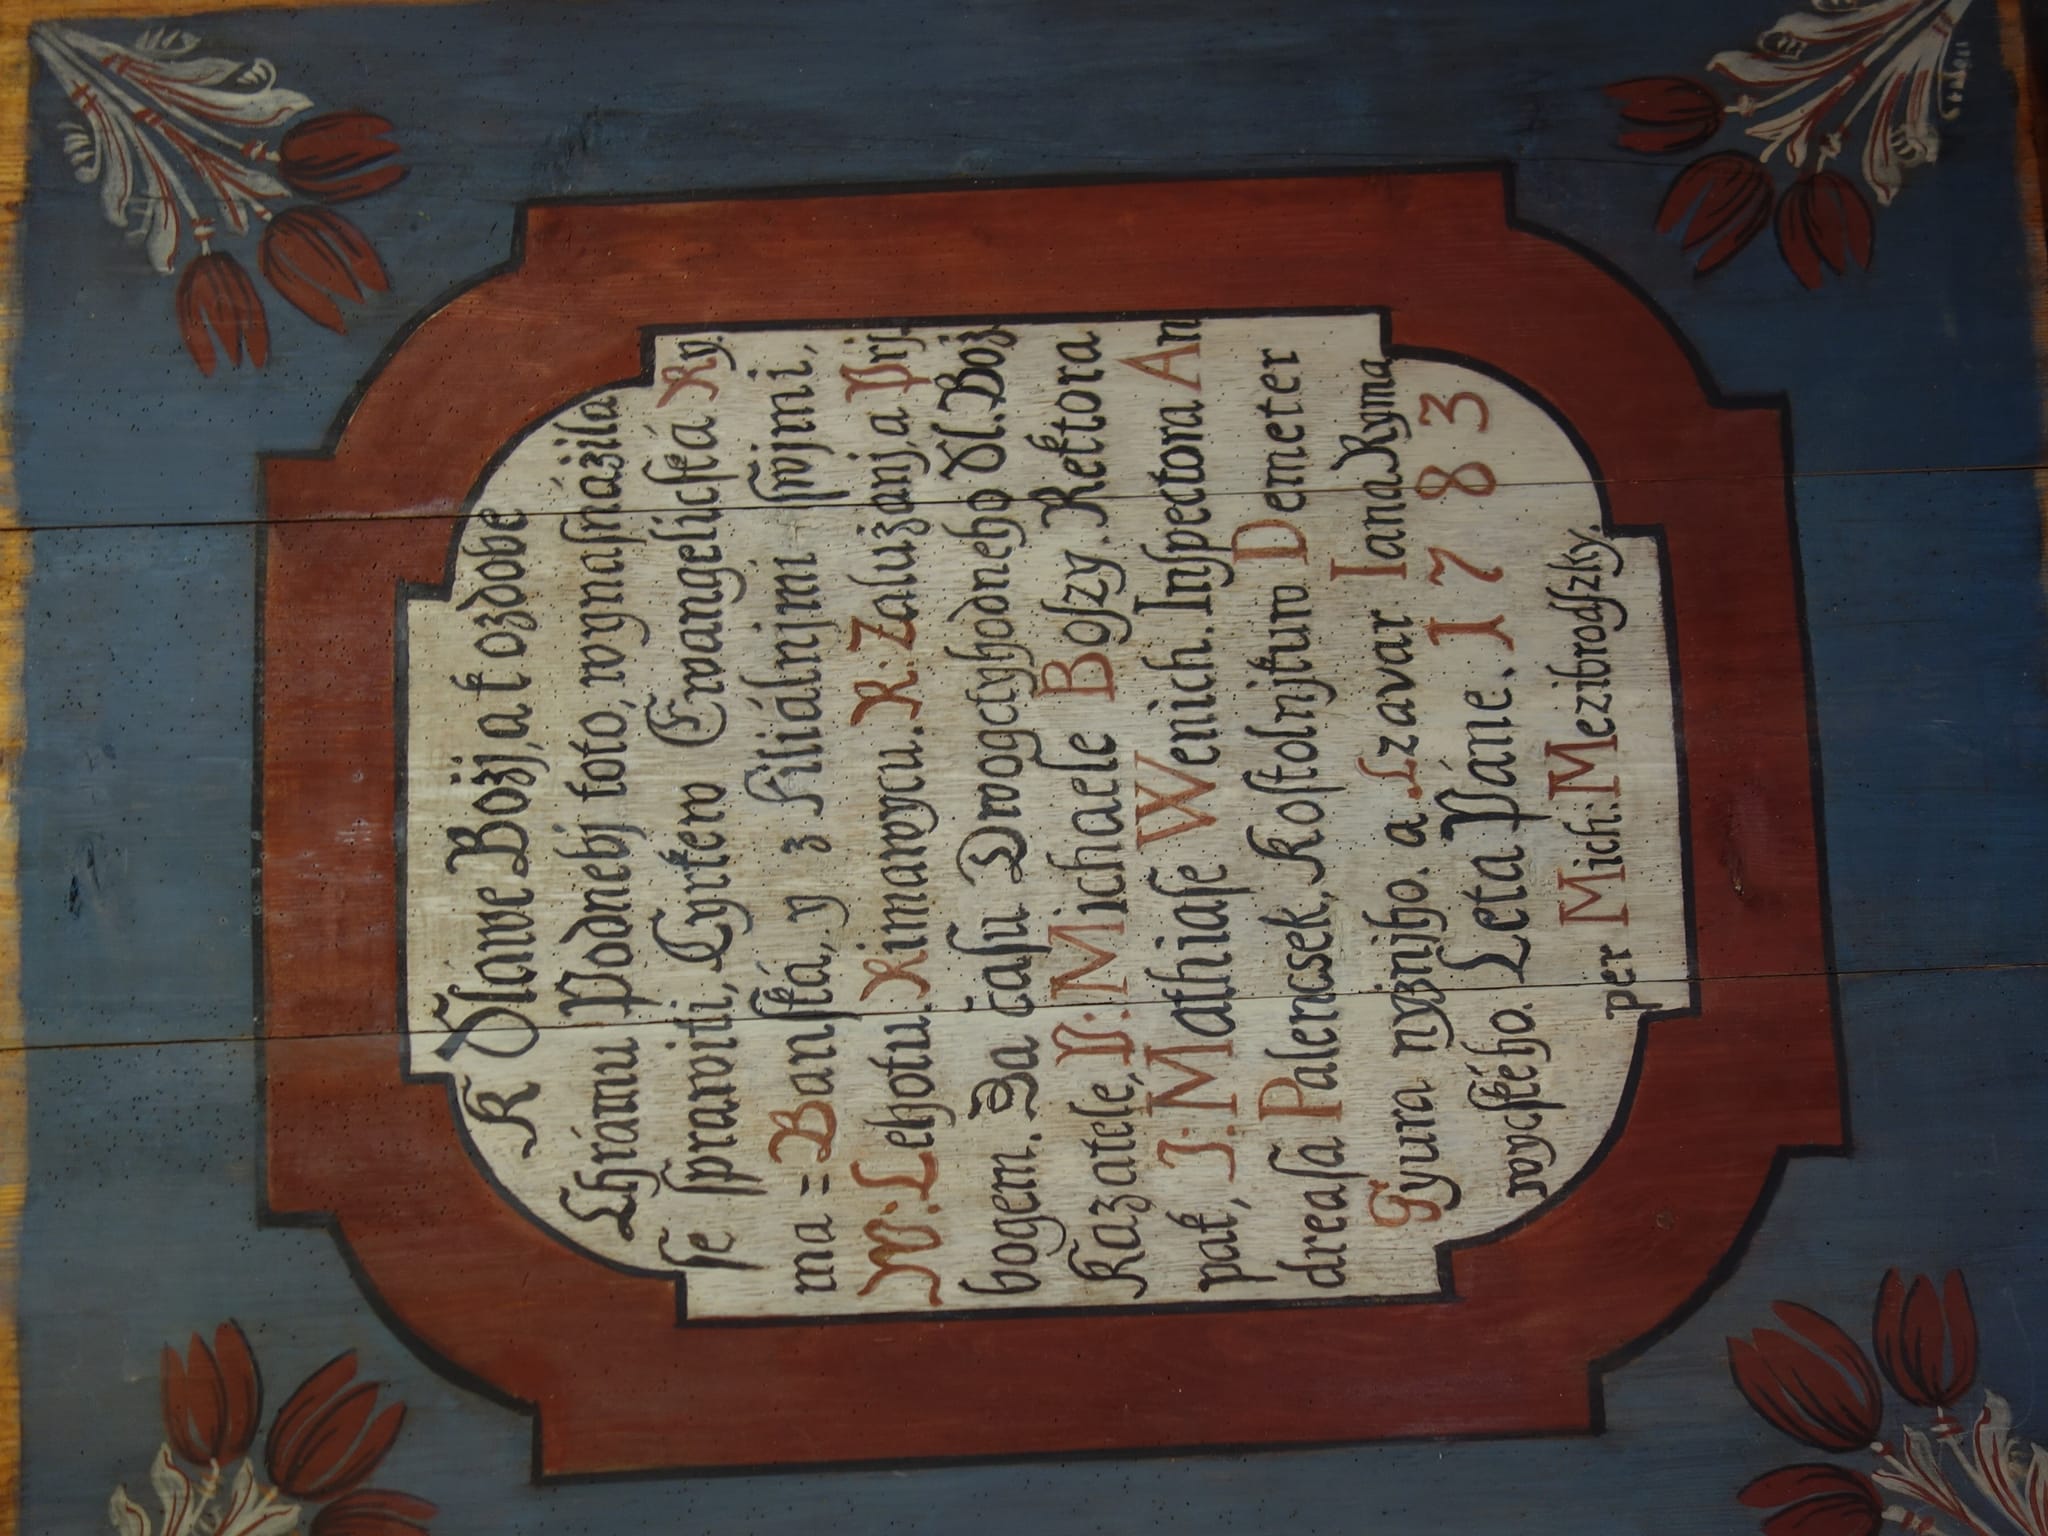 K Sláwe Božj, a k ozdobe
Chrámu Podnebj toto, wymaſnážila
ſe ſprawiti, Cyrkew Ewangelicſká Ry
ma = Banſká, y z Filiálnjmi ſwjmi,
W: Lehotu. Rimawycu. R: Zalužanj, a Prj
bogem. Za čaſu Dwogctyhodneho Sl. Bož
Kazatele, P: Michaele Boſzy. Rektora
pak, J: Mathiaſe Wenich. Inſpectora An
dreaſa Palencsek, Koſtolnjkuw Demeter
Gyura nyžnjho. a Lzavar Iana Ryma
wycſkého. Leta Páne. 1783
per Mich: Mezibrodſzky.